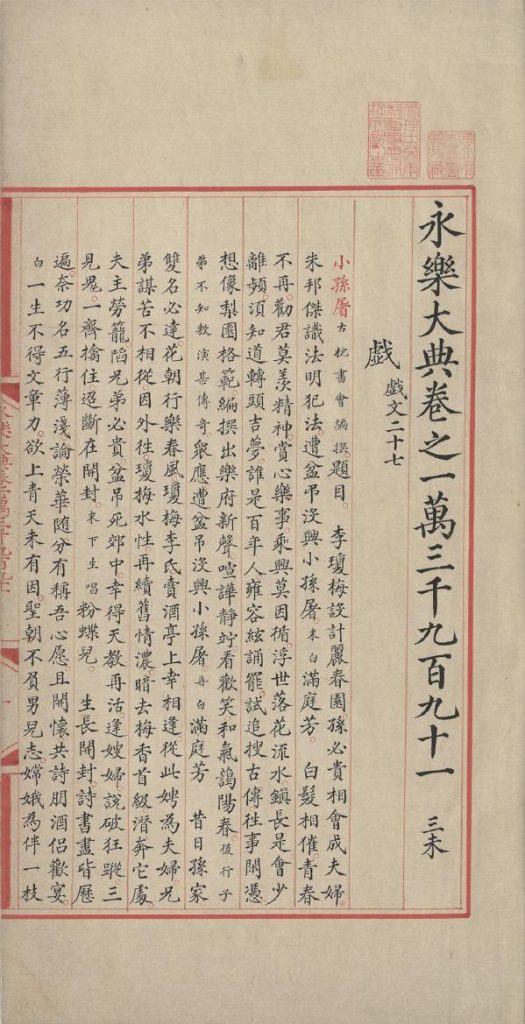 永樂大典卷之一萬三千九百九十一 三未
戲 戲文二十七
小孫屠 古杭書會編撰 題目。 李瓊梅設計麗春園。孫必貴相會成夫婦。
朱邦傑識法明犯法。遭盆吊沒興小孫屠。末白 滿庭芳。 白髮相催。青春
不再。勸君莫羨精神。賞心樂事。乘興莫因循。浮世落花流水。鎮長是會少
離頻。須知道轉頭吉夢。誰是百年人。雍容絃誦罷。試追搜古傳。往事閑憑。
想像梨園格範。編撰出樂府新聲。喧譁靜竚看歡笑。和氣藹陽春。後行子
弟不知敷演甚傳奇。衆應遭盆吊沒興小孫屠。再白 滿庭芳 昔日孫家
雙名必達。花朝行樂春風。瓊梅李氏。賣酒亭上幸相逢。從此娉為夫婦。兄
弟謀苦不相從。因外徃瓊梅水性。再續舊情濃。暗去梅香首級。潛奔它處。
夫主勞籠。陷兄弟必貴盆吊死郊中。幸得天教再活。逢嫂婦說破狂蹤。三
見鬼。一齊擒住。迢斷在開封。末下生唱 粉蝶兒。 生長開封。詩書盡皆歷
遍。奈功名五行薄淺。論榮華隨分有。稱吾心愿。且開懷共詩朋酒侶歡宴。
白 一生不得文章力。欲上青天未有因。聖朝不負男兒志。嫦娥為伴一枝